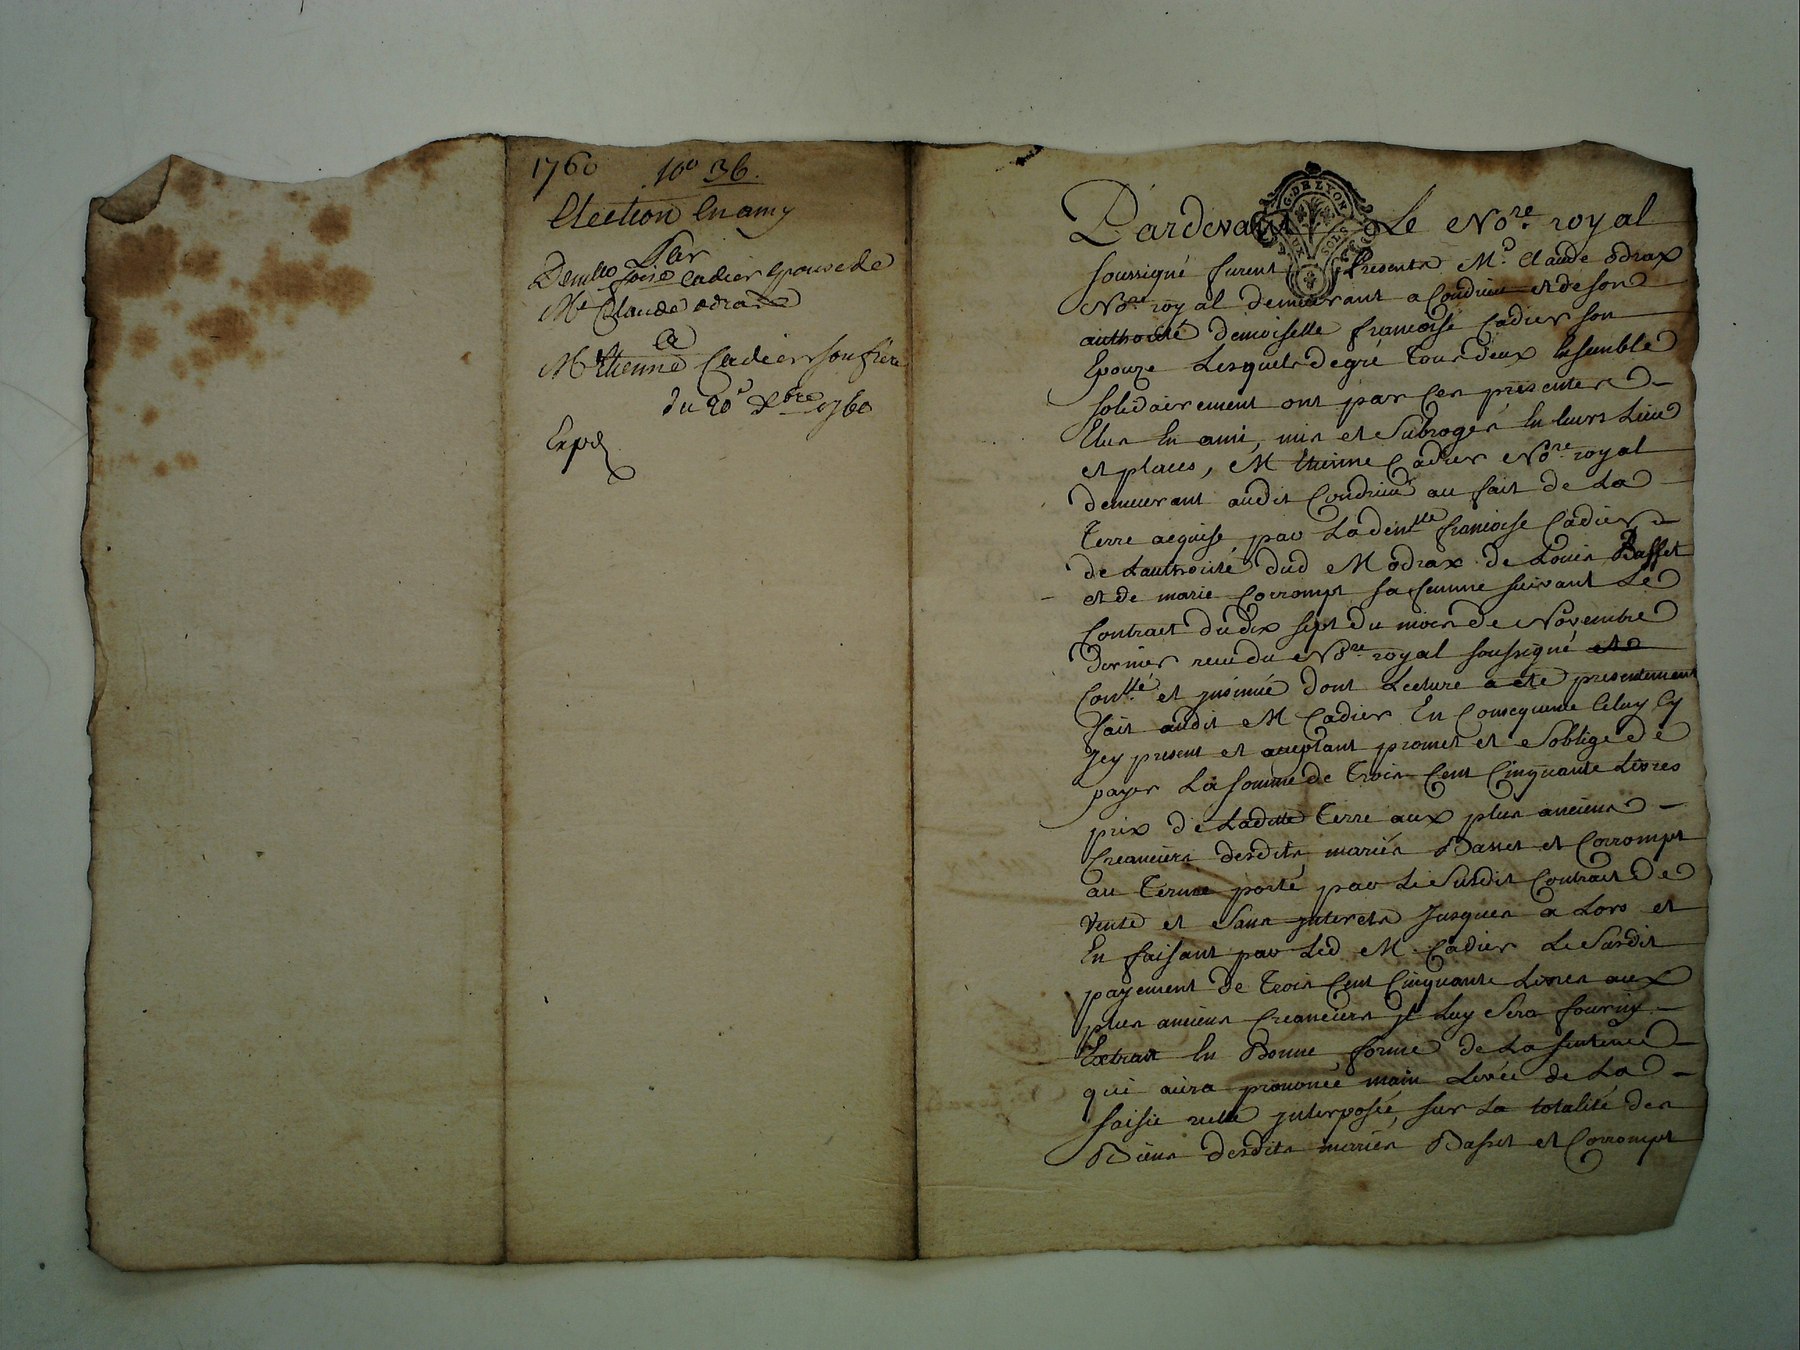 1760 No 36.
Election En amy
Par
Demlle fçoise Cadier Epouse de
Me Claude odrax
a
Me Etienne Cadier son frère
du 20e Xbre 1760
Expé
G. DE LYON
SOLS
Pardevant Le Nore royal
soussigné furent Presents Me Claude odrax
Nore royal demeurant a Condrieu et de son
authorité demoiselle francoise Cadier son
Epouze Lesquels de gré tous deux Ensemble
solidairement ont par Ces presentes
Elus En ami, mis et Subrogés En leurs Lieu
et places, Me Etienne Cadier Nore royal
demeurant audit Condrieu au fait de La
Terre aquise par La demlle francoise Cadier
de Lauthorité dud Me odrax de Louis Basset
et de marie Corrompt sa femme suivant Le
Contract du dix sept du mois de Novembre
dernier recu du Nore royal soussigné
Conllé et jnsinué dont Lecture a eté presentement
fait audit Me Cadier En Consequence Celuy Cy
Jcy present et aceptant promet et Soblige de
payer La somme de Trois Cent Cinquante Livres
prix de Ladite Terre aux plus anciens
Creanciers desdits mariés Basset et Corrompt
au Terme porté par Le Susdit Contract de
Vente et Sans jnterets Jusques a Lors et
En faisant par Led Me Cadier Le Susdit
payement de Trois Cent Cinquante Livres aux
plus anciens Creanciers jl Luy Sera fourny
Extrait En Bonne forme de La sentence
qui aura prononcé main Levée de La
saisie reelle jnterposée, sur La totalité des
Biens desdits mariés Basset et Corrompt